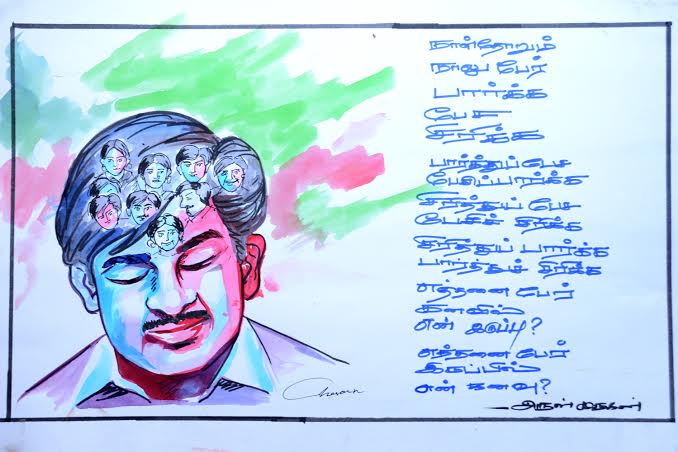 நாள்தோறும்
நாலு பேர்
பார்க்க
பேச
சிரிக்க
பார்த்துப் பேச
பேசிப்பார்க்க
சிரித்துப் பேச
பேசிச் சிரிக்க
சிரித்துப் பார்க்க
பார்த்துச் சிரிக்க
எத்தனை பேர்
கனவில்
என் இருப்பு?
எத்தனை பேர்
இருப்பில்
என் கனவு?